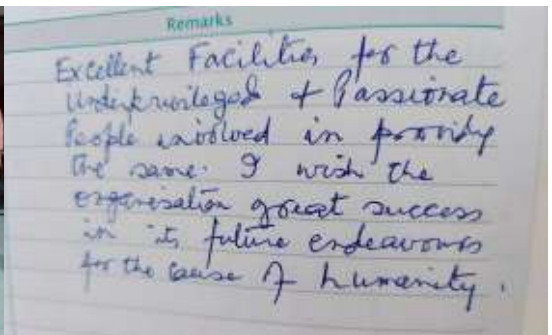 Remarks
Excellent Facilities for the
Underprivileged & Passionate
People involved in providing
the same. I wish the
organisation great success
in its future endeavours
for the cause of humanity.